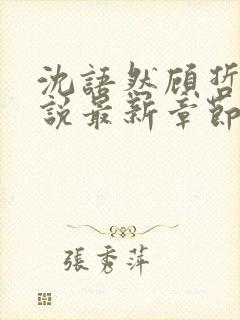 沈語然顧哲
說最新章節
張秀萍